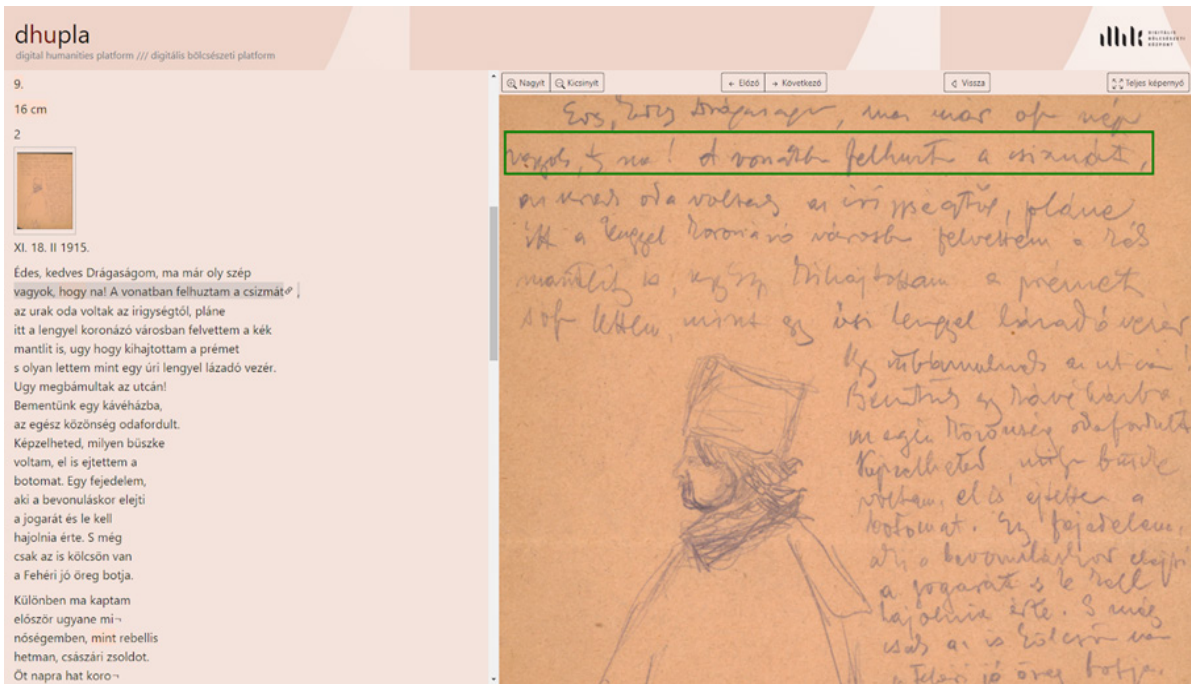 dhupla
digital humanities platform /// digitális bölcsészeti platform
DIGITÁLIS
BÖLCSÉSZETI
KÖZPONT
9.
16 cm
2
XI. 18. II 1915.
Édes, kedves Drágaságom, ma már oly szép
vagyok, hogy na! A vonatban felhuztam a csizmát ,
az urak oda voltak az irigységtől, pláne
itt a lengyel koronázó városban felvettem a kék
mantlit is, ugy hogy kihajtottam a prémet
s olyan lettem mint egy úri lengyel lázadó vezér.
Ugy megbámultak az utcán!
Bementünk egy kávéházba,
az egész közönség odafordult.
Képzelheted, milyen büszke
voltam, el is ejtettem a
botomat. Egy fejedelem,
aki a bevonuláskor elejti
a jogarát és le kell
hajolnia érte. S még
csak az is kölcsön van
a Fehéri jó öreg botja.
Különben ma kaptam
először ugyane mi¬
nőségemben, mint rebellis
hetman, császári zsoldot.
Öt napra hat koro¬
Nagyít Kicsinyít ← Előző → Következő Vissza Teljes képernyő
Drágaságom, ma már oly szép
vagyok, na! A felhuztam a csizmát,
az urak oda voltak az irigységtől, pláne
itt a lengyel koronázó felvettem a kék
mantlit is, kihajtottam a prémet
lettem mint egy úri lengyel lázadó vezér
az utcán!
egy kávéházba,
az egész közönség odafordult
Képzelheted büszke
voltam, el is ejtettem a
botomat. Egy fejedelem,
aki a bevonuláskor elejti
a jogarát s le kell
hajolnia érte. S még
csak az is kölcsön van
a Fehéri jó öreg botja.